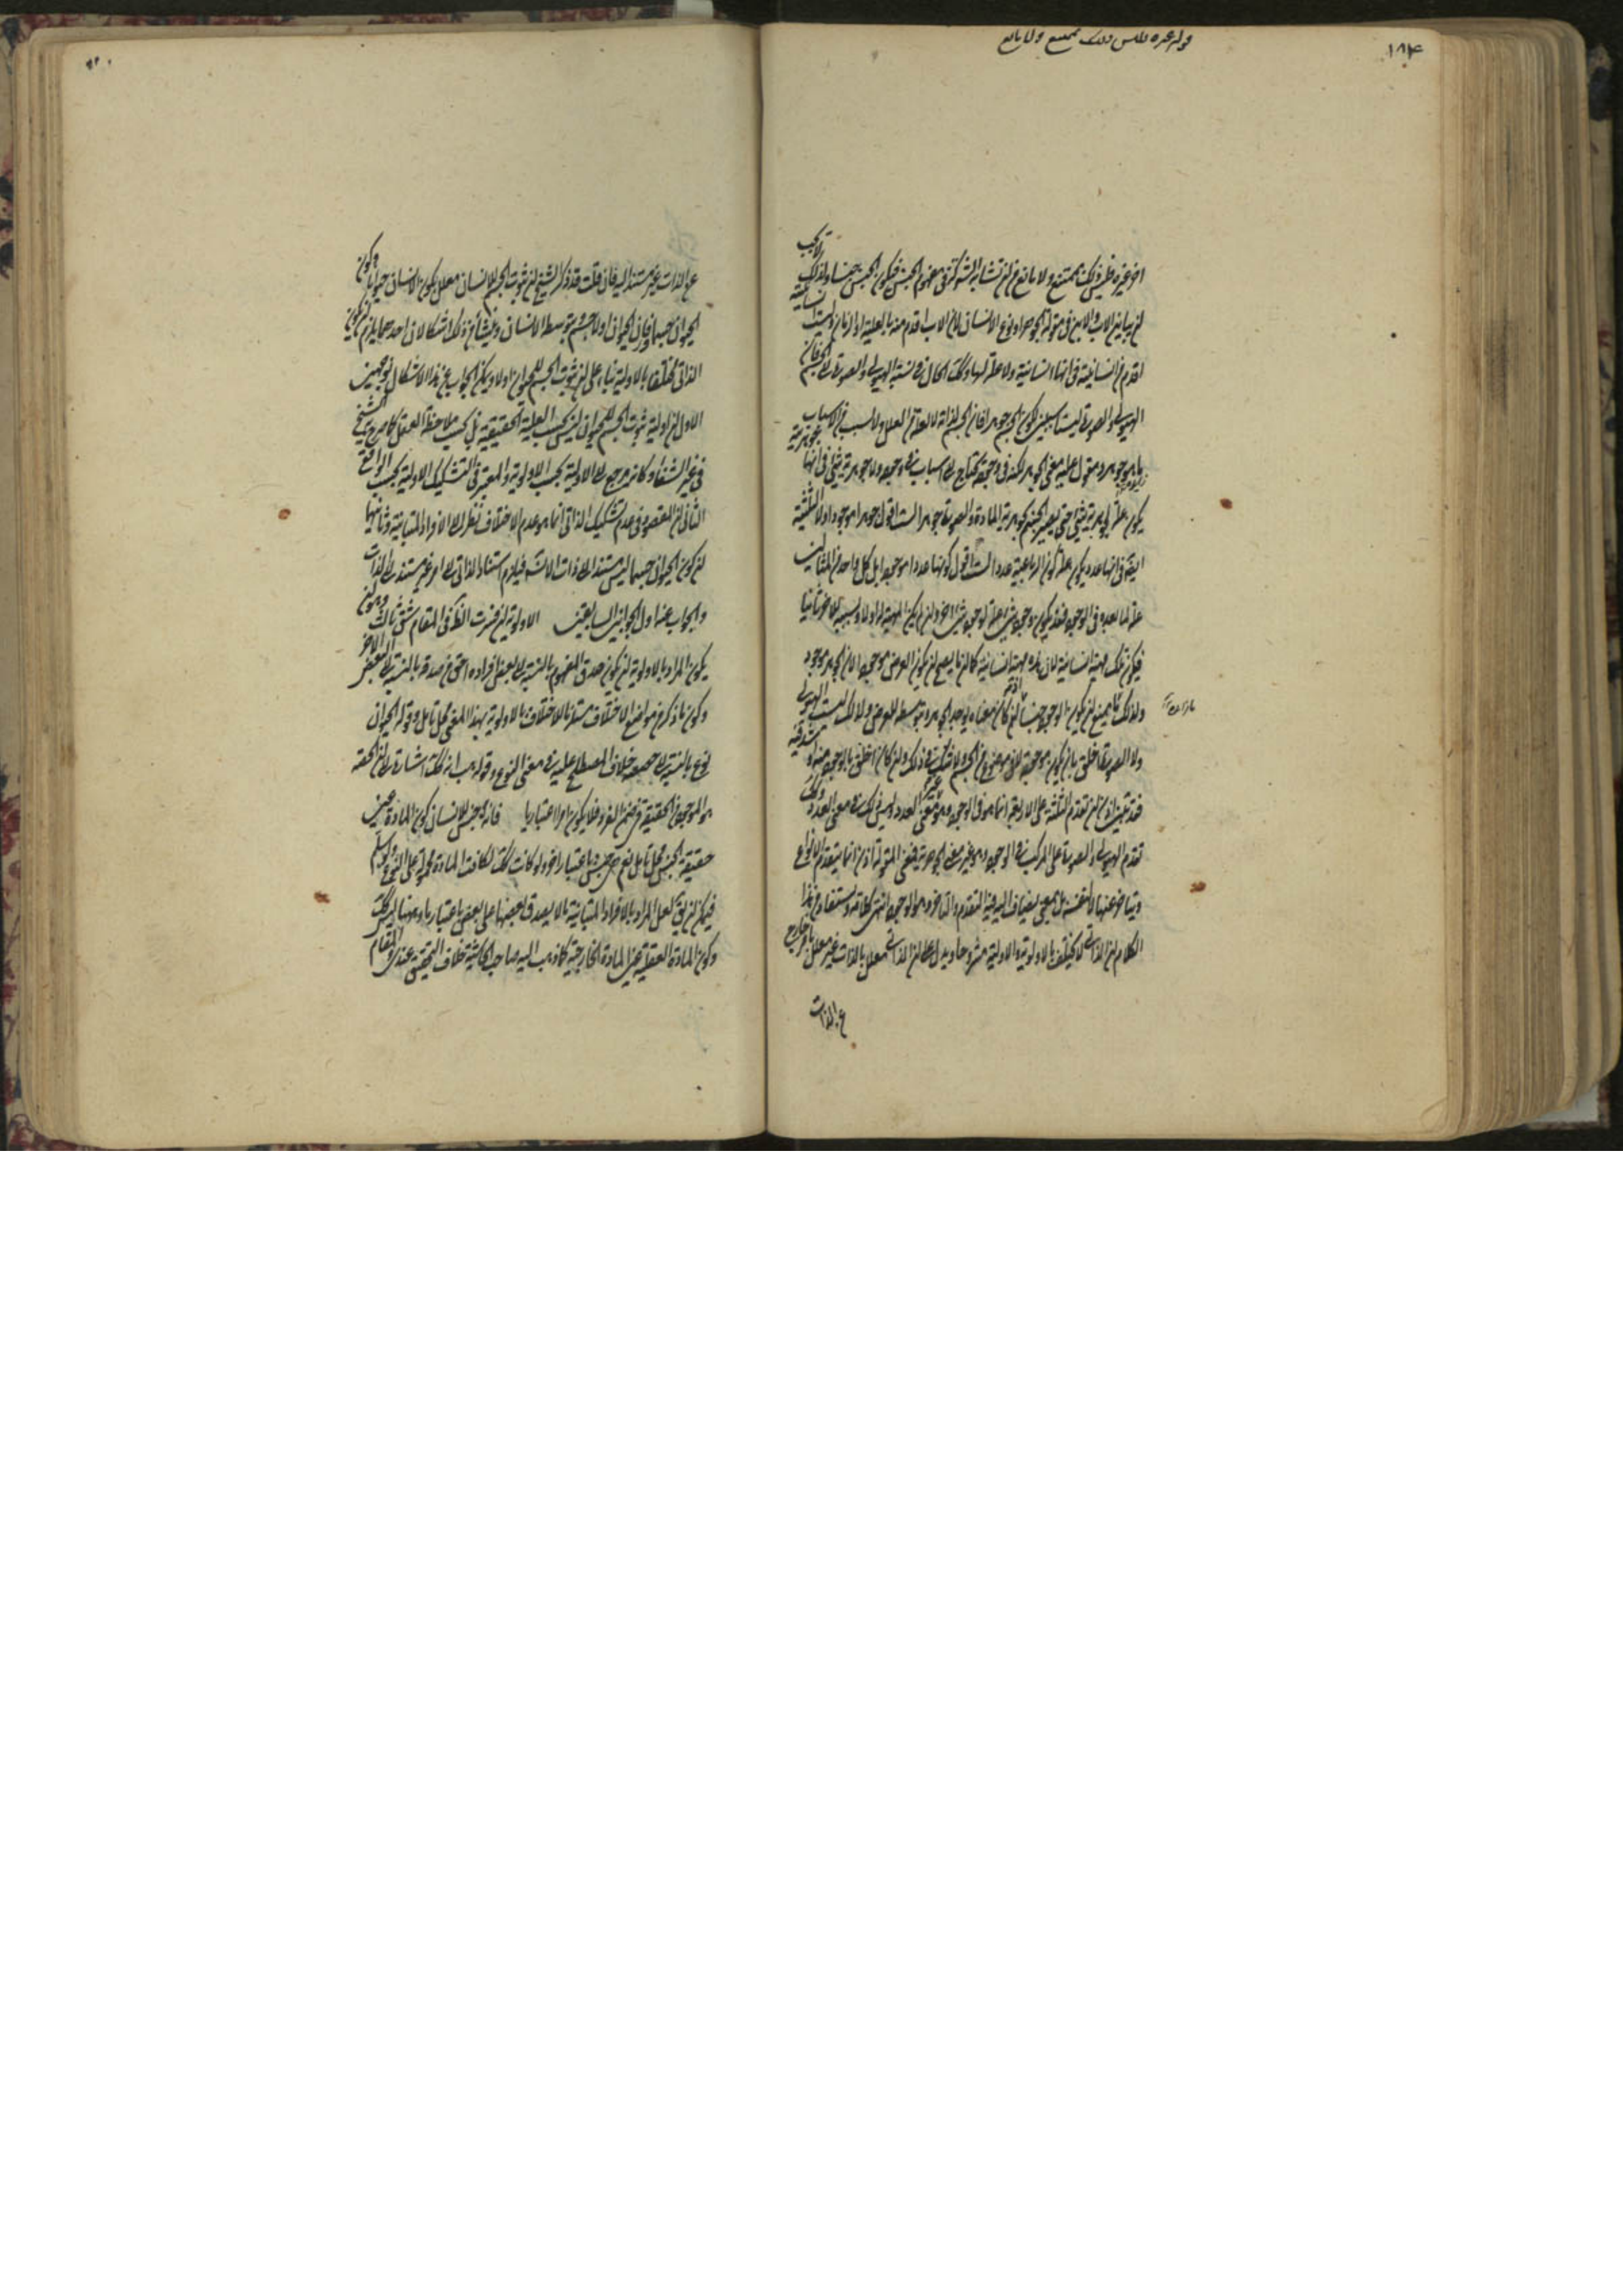 ١٨٤
قوله غيره فليس ذلك بممتنع ولا مانع
اخر غيره فليس ذلك بممتنع ولا مانع من ان تشابه المشتركة في مفهوم الجنس فيكون الجنس جنسا ولذلك لا يجب
ان يباين الاب والابن في مقولة الجوهر او نوع الانسان لان الاب اقدم منه بالعلية او الزمان وليست انسانيته
اقدم من انسانيته في انها انسانية ولا علة لها وكذلك الحال في نسبة الهيولى والصورة الى الجسم فان
الهيولى والصورة ليستا سببين لكون الجسم جوهرا فان الجسم لذاته لا لعلة من العلل ولا لسبب من الاسباب
ما هو جوهر ومقول عليه معنى الجوهر لكنه في وجوده يحتاج الى اسباب في وجوده ولا جوهرية شيء في انها جوهرية
يكون علة لجوهرية شيء حتى يصير الجسم بجوهرية المادة والصورة جوهرا لست اقول جوهرا موجودا ولا الثلثية
ايضا في انها عدد يكون علة لكون الرباعية عددا لست اقول كونها عددا موجودا بل كل واحد من المثالين
علة لما بعده في الوجود فقد يكون وجود شيء علة لوجود شيء اخر وان لم يكن المهية له اولا وبسببه للاخر ثانيا
فيكون تلك مهية انسانية لان هذه مهية انسانية كما انه ما يصح ان يكون العرض موجودا لان الجوهر موجود
ولذلك ما يمنع ان يكون الوجود جنسا
ولا الصورة اخلق بان يكون موجودة لا في موضوع من الجسم ولا شك في ذلك وان كان اخلق بالوجود منه او اشد فيه
فقد تبين اذن ان تقدم الثلثة على الاربعة انما هو في الوجود وهو غير معنى العدد وليس ذلك في معنى العدد وكذلك
تقدم الهيولى والصورة على المركب في الوجود وهو غير معنى الجوهرية فمعنى المقولة اذن انما يتقدم الانواع
ويتأخر عنها لا بنفسه بل بمعنى يضاف اليه فيه التقدم والتأخر وهو الوجود انتهى كلامه ويستفاد من هذا
الكلام ان الذاتي لا يختلف بالاولوية والاولية مشروحا ويدل على ان الذاتي معلل بالذات غير معلل بامر خارج
عن الذات
عن الذات غير مستند اليه فان قلت قد ذكر الشيخ ان ثبوت الجسم للانسان معلل بكون الانسان حيوانا وكون
الحيوان جسما فان الحيوان اولا جسم وبتوسطه الانسان وينشأ من ذلك اشكالان احدهما يلزم ان يكون
الذاتي مختلفا بالاولية بناء على ان ثبوت الجسم للحيوان اولا ويمكن الجواب عن هذا الاشكال بوجهين
الاول ان اولية ثبوت الجسم للحيوان ليس بحسب العلية الحقيقية بل بحسب ملاحظة العقل كما صرح به الشيخ
في غير الشفاء وكانه يرجع الى الاولية بحسب الاولوية والمعتبر في التشكيك الاولية بحسب الواقع
الثاني ان المقصود في عدم تشكيك الذاتي انما هو عدم الاختلاف نظرا الى الافراد المتباينة وثانيهما
ان كون الحيوان جسما ليس مستندا الى ذات الانسان فيلزم استناد الذاتي الى امر غير مستند الى الذات
والجواب عنه اول الجوابين السابقين الاولوية ان فسرت الظ في المقام شق ثالث وهو ان
يكون المراد بالاولوية ان يكون صدق المفهوم بالنسبة الى بعض افراده احق من صدقه بالنسبة الى البعض الاخر
وكون ما ذكر من مواضع الاختلاف مستلزما للاختلاف بالاولوية بهذا المعنى محل تامل وقوله الحيوان
نوع بالنسبة الى حصصه خلاف المصطلح عليه في معنى النوع وقوله
هو الموجود في الحقيقة في ضمن الفرد فلا يكون امرا اعتباريا فانه جنس للانسان كون المادة عين
حقيقة الجنس محل تامل نعم هي جنس باعتبار اخر ولو كانت كذلك لكانت المادة محمولة على النوع ولو سلم
فيمكن ان يق لعل المراد بالافراد المتباينة ما لا يصدق بعضها على بعض باعتبار ما وههنا ليس كذلك
وكون المادة العقلية عين المادة الخارجية كما ذهب اليه صاحب المحاكمة خلاف التحقيق عندي والمقام